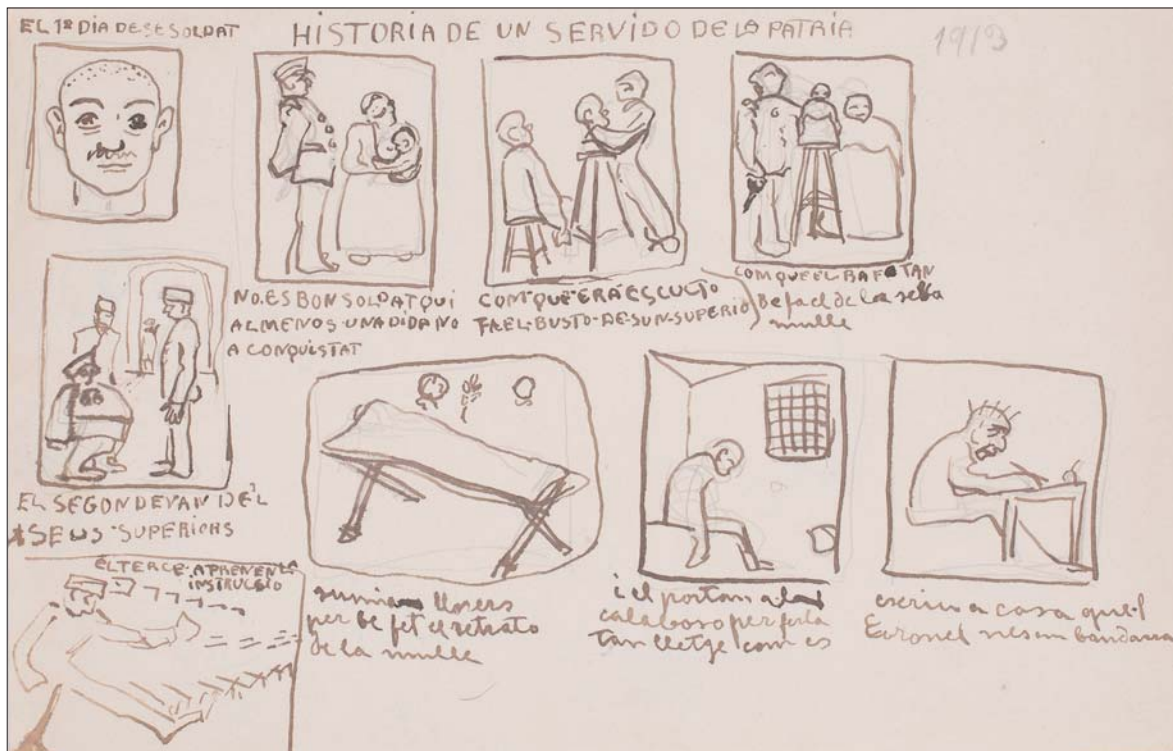 EL 1R DIA DE SE SOLDAT
HISTORIA DE UN SERVIDO DE LA PATRIA
1913
NO ES BON SOLDAT QUI
AL MENOS UNA DIDA NO
A CONQUISTAT
COM QUE ERA ESCULTO
FA EL BUSTO DE SUN SUPERIO
COM QUE EL BA FE TAN
Be fa el de la seba
mulle
EL SEGON DEVAN DEL
SEUS SUPERIORS
EL TERCE APRENEN LA
INSTRUCCIO
sumia llosers
per be fet el retrato
de la mulle
i el portan a
calaboso per ferla
tan lletge com es
escriu a casa quel
Coronel nes un bandarra